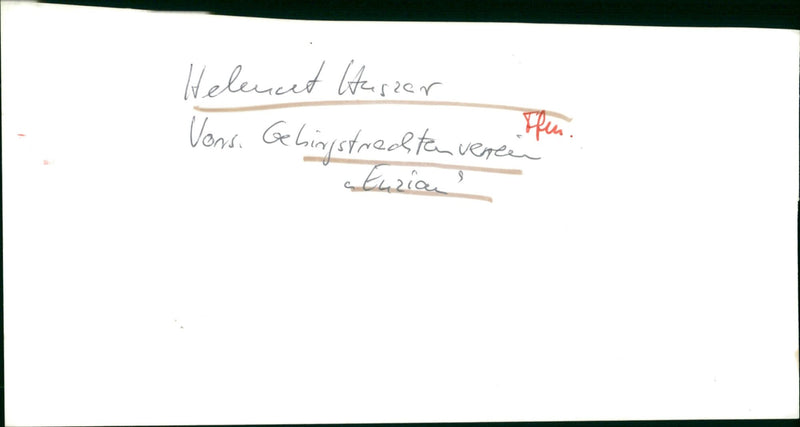 Helmut Huszar
Ffm.
Vors. Gebirgstrachtenverein
„Enzian"